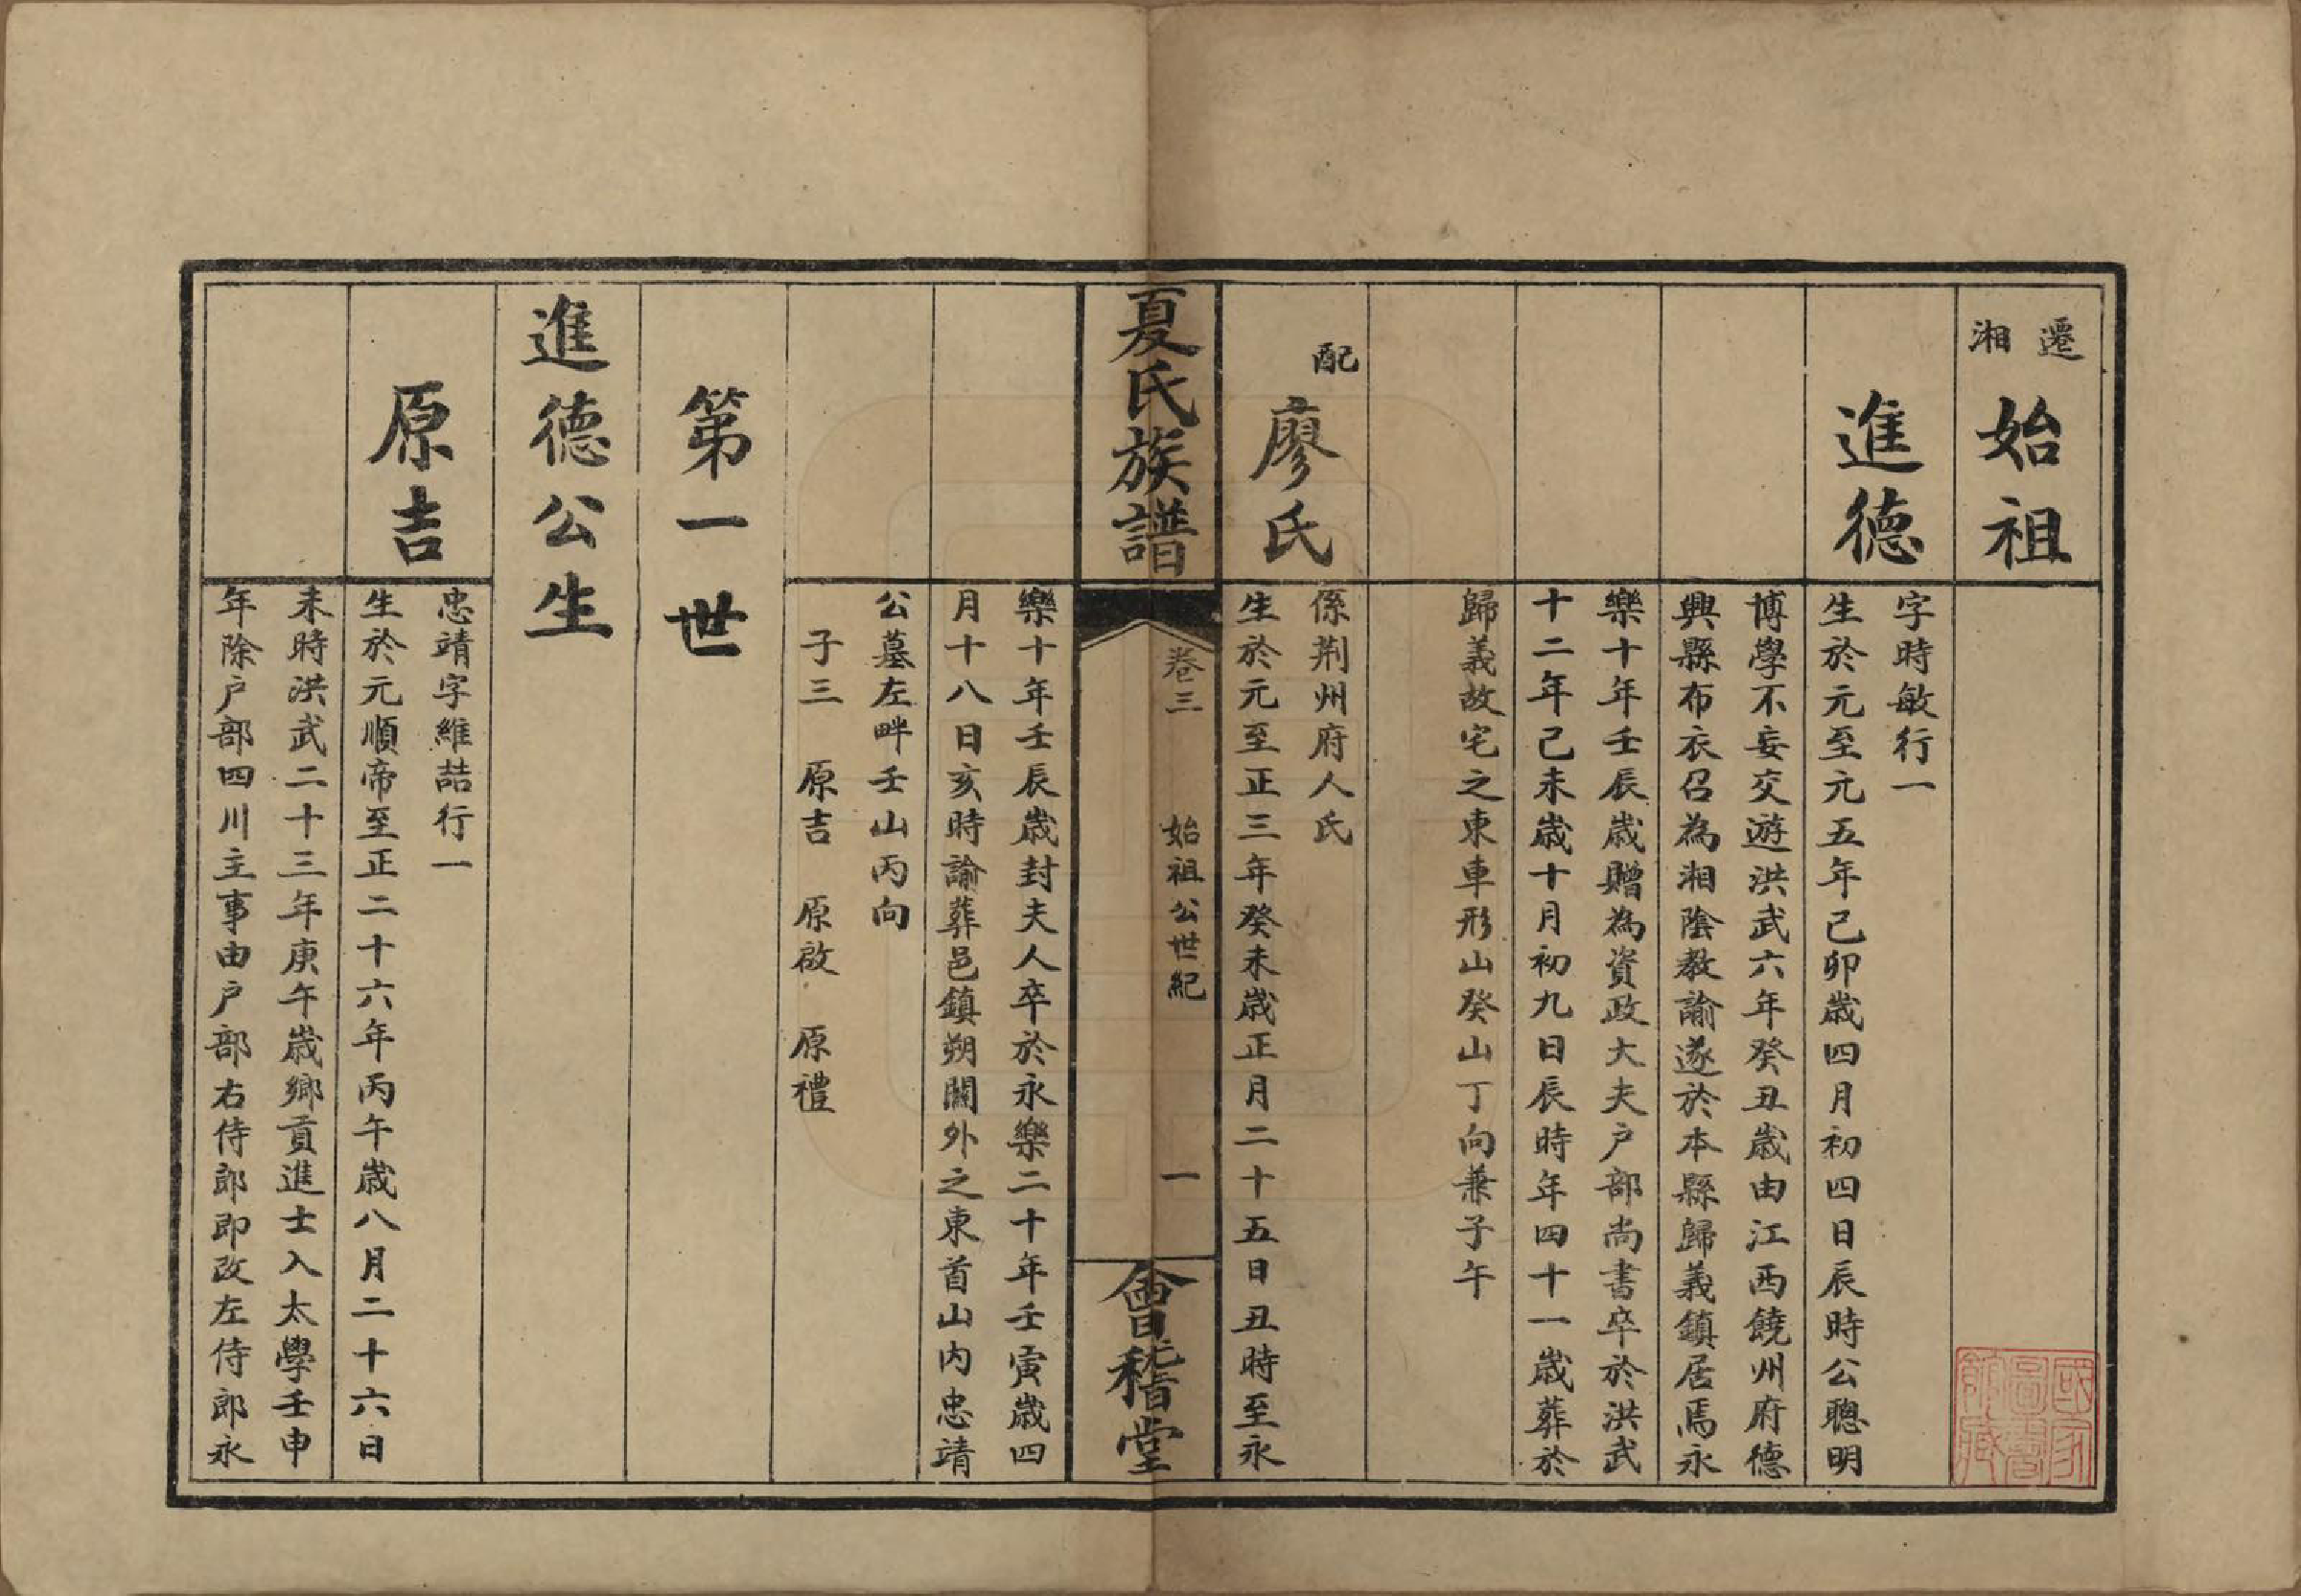 遷湘
始祖
進德
字時敏行一
生於元至元五年己卯歲四月初四日辰時公聰明
博學不妄交遊洪武六年癸丑歲由江西饒州府德
興縣布衣召為湘陰教諭遂於本縣歸義鎮居焉永
樂十年壬辰歲贈為資政大夫户部尚書卒於洪武
十二年己未歲十月初九日辰時年四十一歲葬於
歸義故宅之東車形山癸山丁向兼子午
配
廖氏
係荆州府人氏
生於元至正三年癸未歲正月二十五日丑時至永
夏氏族譜
卷三
始祖公世紀
一
會稽堂
樂十年壬辰歲封夫人卒於永樂二十年壬寅歲四
月十八日亥時諭葬邑鎮朔關外之東首山内忠靖
公墓左畔壬山丙向
子三 原吉 原啟 原禮
第一世
進德公生
原吉
忠靖字維喆行一
生於元順帝至正二十六年丙午歲八月二十六日
未時洪武二十三年庚午歲鄉貢進士入太學壬申
年除户部四川主事由户部右侍郎即改左侍郎永
國家圖書館藏